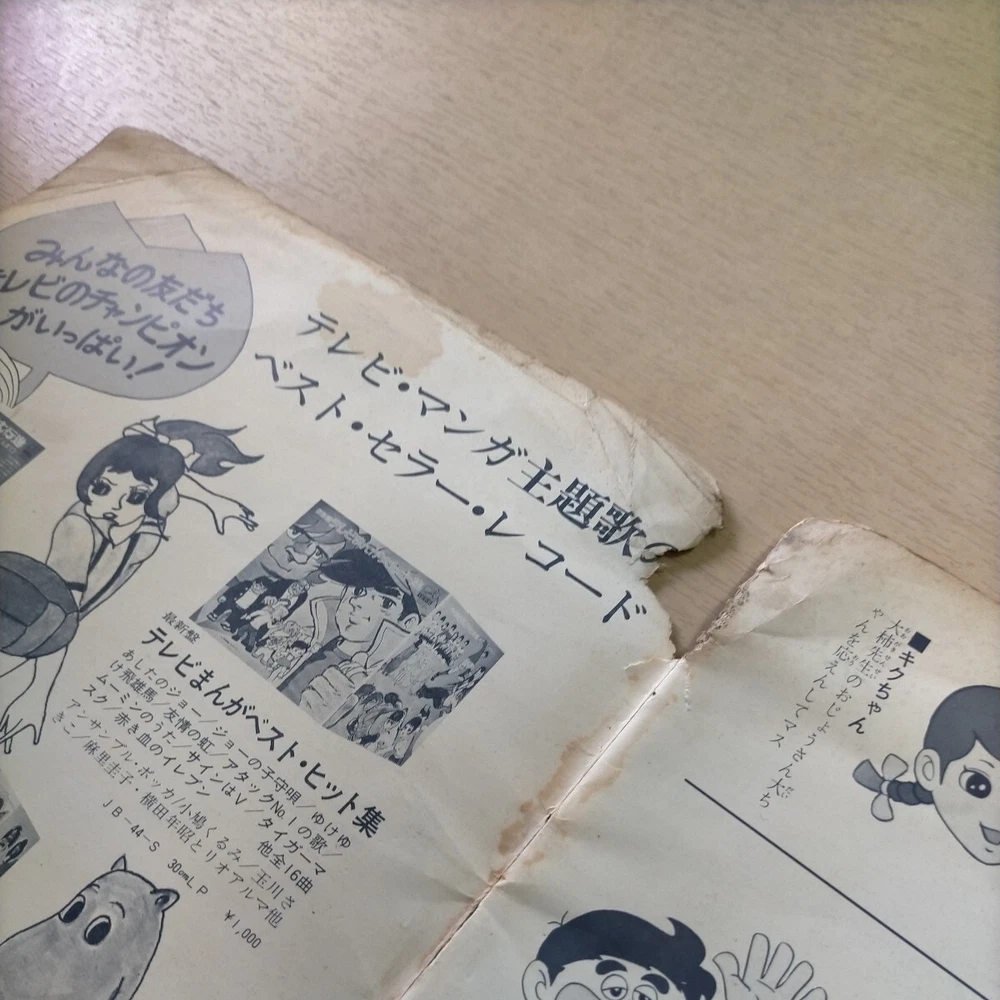 みんなの友だち
テレビのチャンピオン
がいっぱい!
テレビ・マンガ主題歌の
ベスト・セラー・レコード
最新盤
テレビまんがベスト・ヒット集
あしたのジョー/ジョーの子守唄/ゆけゆ
け飛雄馬/友情の虹/アタックNo.1の歌/
ムーミンのうた/サインはV/タイガーマ
スク/赤き血のイレブン 他全16曲
アンサンブル・ボッカ/小鳩くるみ/玉川さ
きこ/麻里圭子・横田年昭とリオアルマ他
JB-44-S 30cmLP ¥1,000
■キクちゃん
大柿先生のおじょうさん大ち
ゃんを応えんしてマス